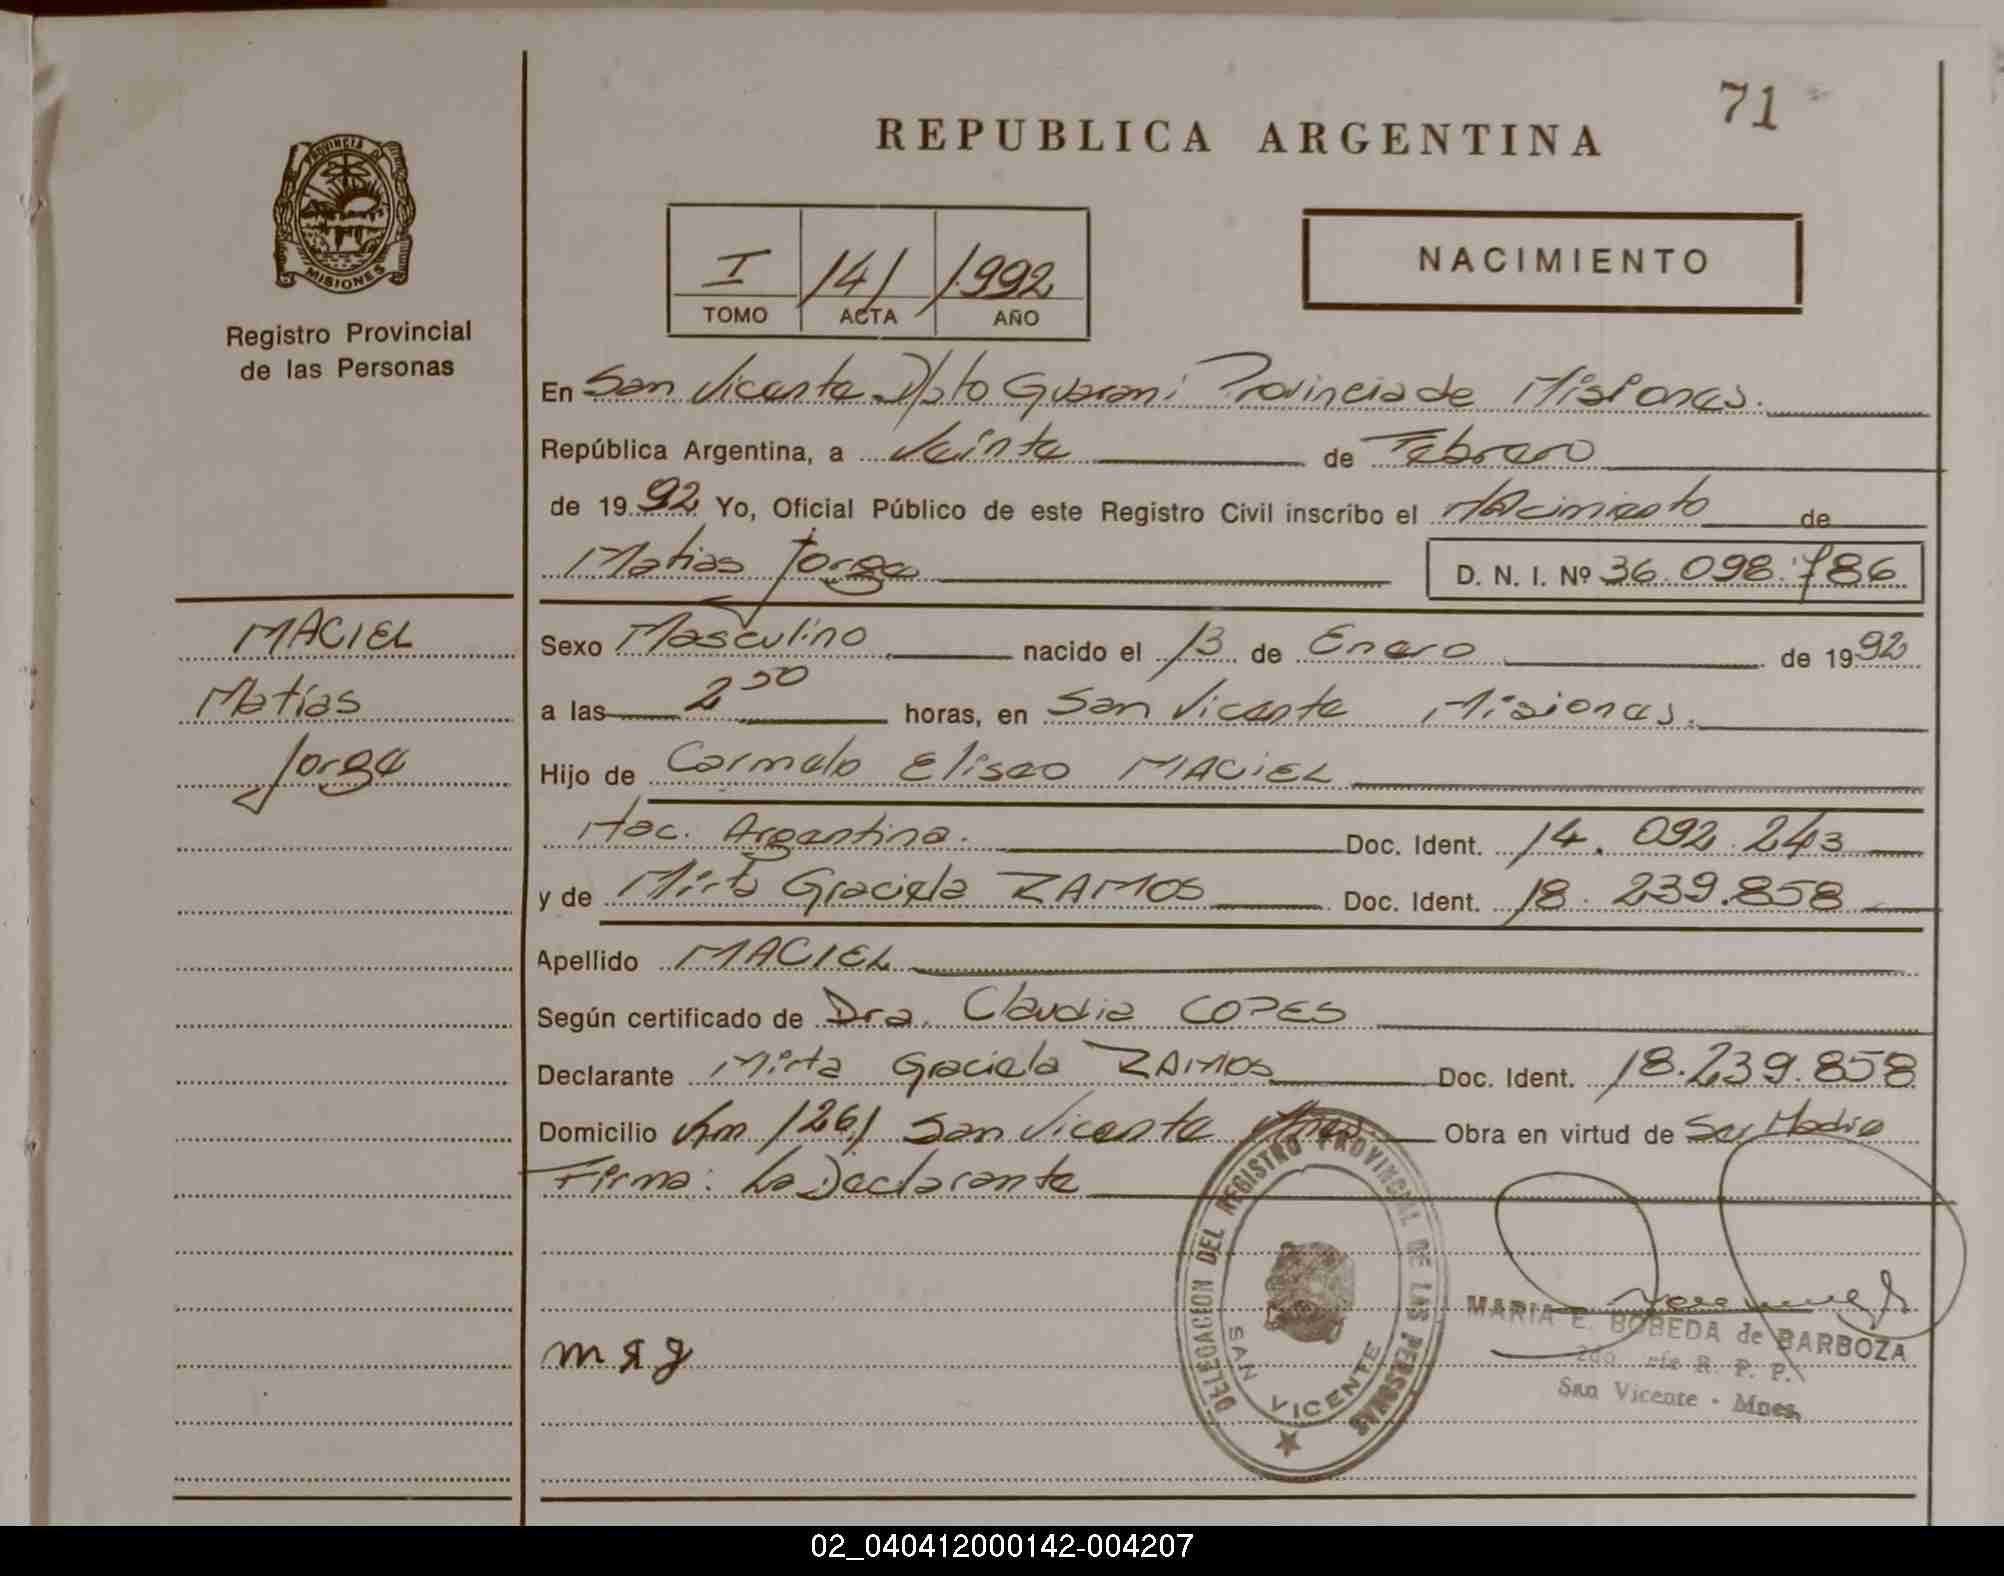 71
REPUBLICA ARGENTINA
PROVINCIA D
MISIONES
Registro Provincial
de las Personas
I 141 1992
TOMO ACTA AÑO
NACIMIENTO
En San Vicente Dpto Guarani Provincia de Misiones.
República Argentina, a Veinte de Febrero
de 1992 Yo, Oficial Público de este Registro Civil inscribo el Nacimiento de
Matias Jorge D. N. I. Nº 36.098.786
MACIEL
Matías
Jorge
Sexo Masculino nacido el 13 de Enero de 1992
a las 2 50 horas, en San Vicente Misiones.
Hijo de Carmelo Eliseo MACIEL
Nac. Argentina. Doc. Ident. 14.092.243
y de Mirta Graciela RAMOS Doc. Ident. 18.239.858
Apellido MACIEL
Según certificado de Dra. Claudia COPES
Declarante Mirta Graciela RAMOS Doc. Ident. 18.239.858
Domicilio Km 1261 San Vicente Mnes Obra en virtud de Ser Madre
Firma: La Declarante
DELEGACION DEL REGISTRO PROVINCIAL DE LAS PERSONAS
SAN VICENTE
MARIA E. BOBEDA de BARBOZA
R. P. P.
San Vicente - Mnes.
02_040412000142-004207